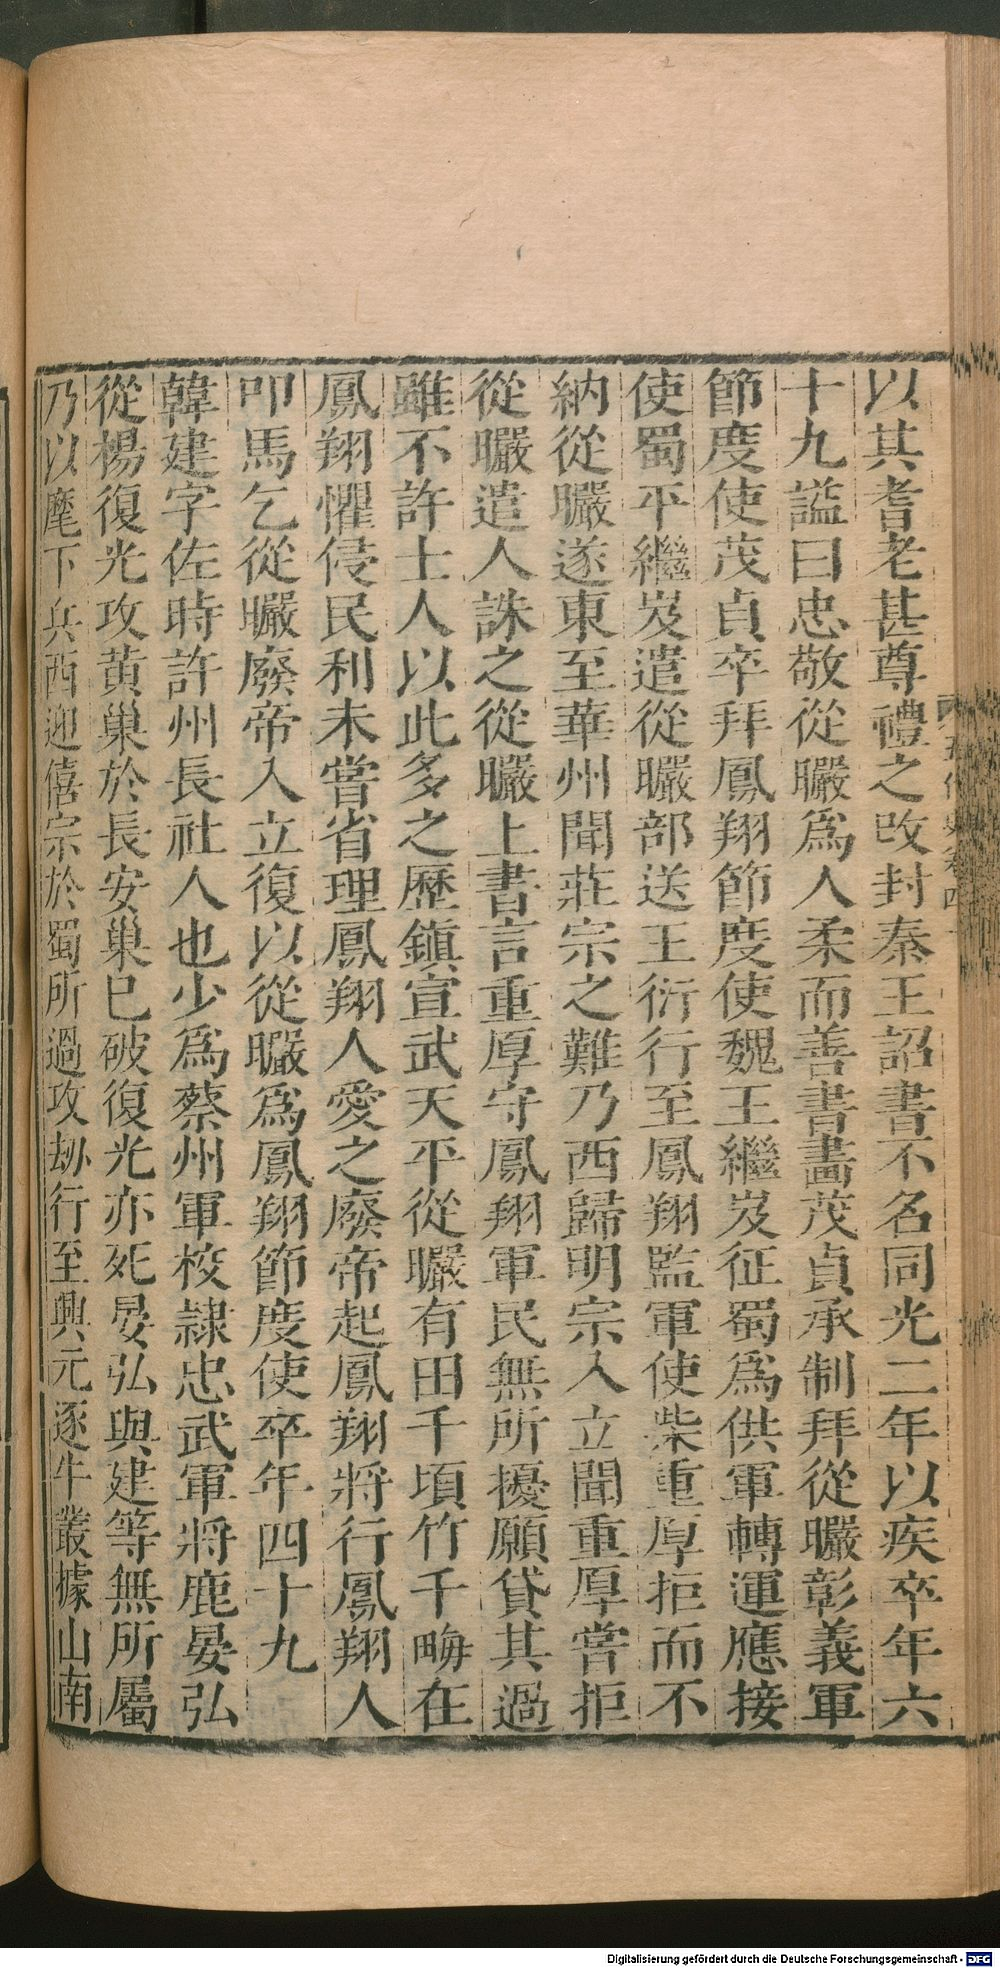 以其耆老甚尊禮之改封秦王詔書不名同光二年以疾卒年六
十九謚曰忠敬從曮爲人柔而善書畫茂貞承制拜從曮彰義軍
節度使茂貞卒拜鳳翔節度使魏王繼岌征蜀爲供軍轉運應接
使蜀平繼岌遣從曮部送王衍行至鳳翔監軍使柴重厚拒而不
納從曮遂東至華州聞莊宗之難乃西歸明宗入立聞重厚嘗拒
從曮遣人誅之從曮上書言重厚守鳳翔軍民無所擾願貸其過
雖不許士人以此多之歷鎮宣武天平從曮有田千頃竹千畝在
鳳翔懼侵民利未嘗省理鳳翔人愛之廢帝起鳳翔將行鳳翔人
叩馬乞從曮廢帝入立復以從曮爲鳳翔節度使卒年四十九
韓建字佐時許州長社人也少爲蔡州軍校隷忠武軍將鹿晏弘
從楊復光攻黄巢於長安巢已破復光亦死晏弘與建等無所屬
乃以麾下兵西迎僖宗於蜀所過攻刼行至興元逐牛叢據山南
Digitalisierung gefördert durch die Deutsche Forschungsgemeinschaft - DFG